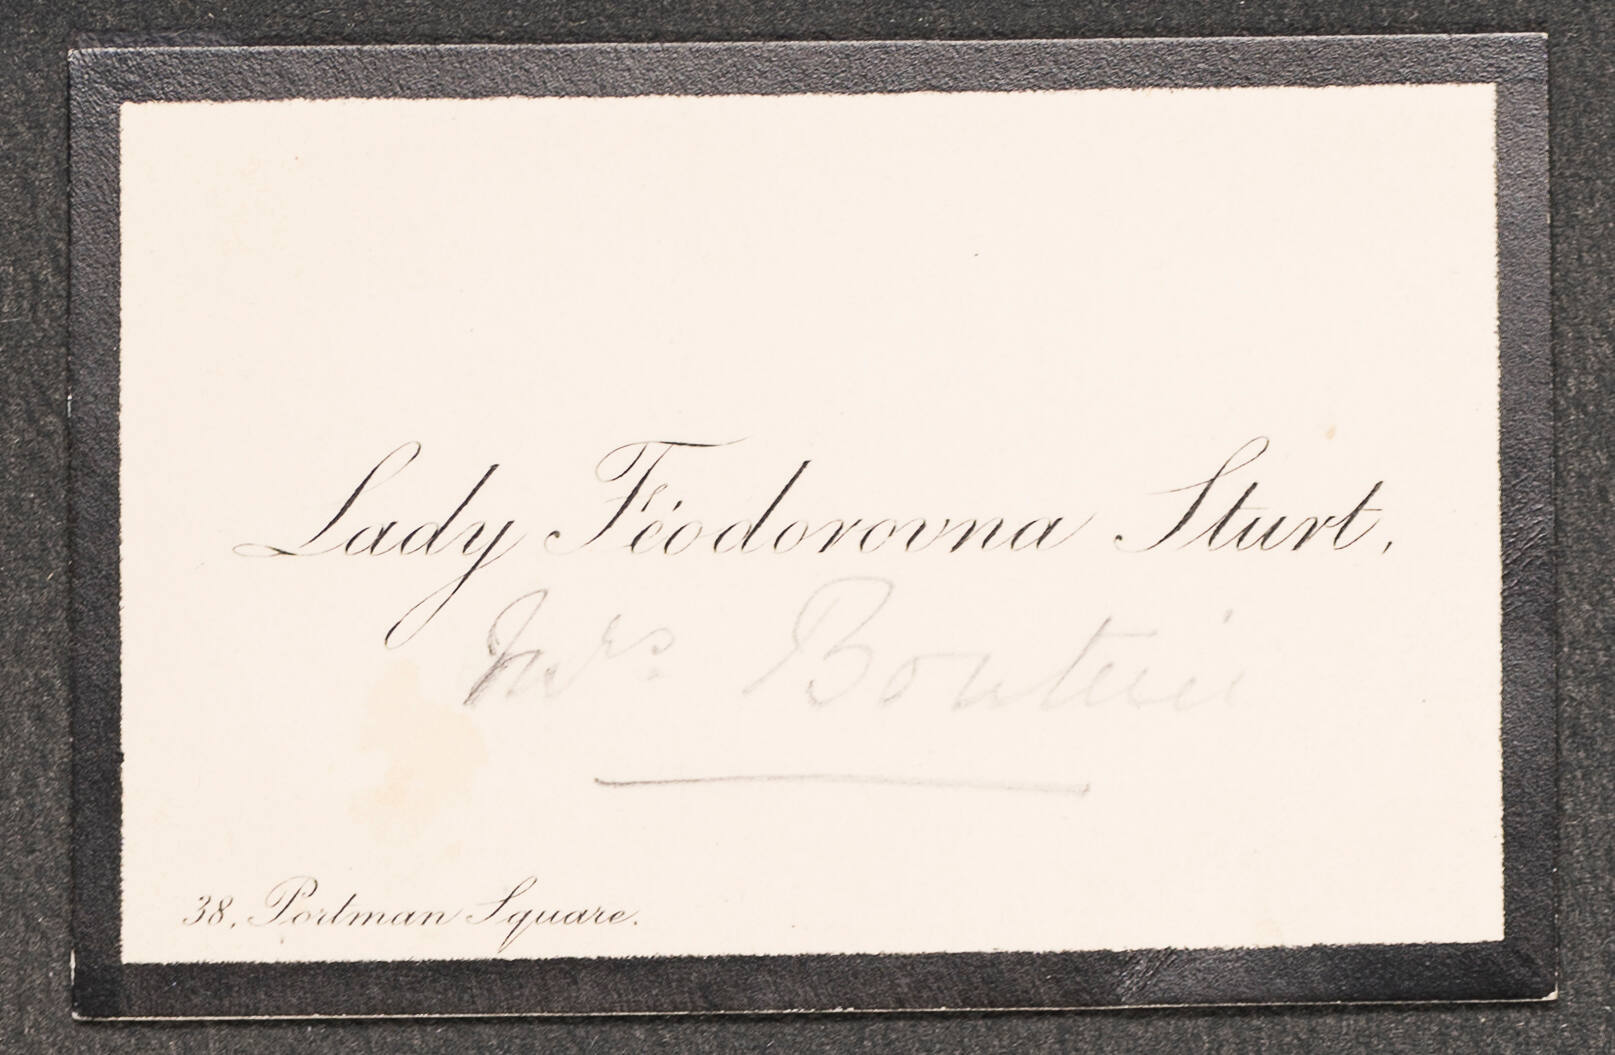 Lady Féodorovna Sturt,
Mrs
38, Portman Square.